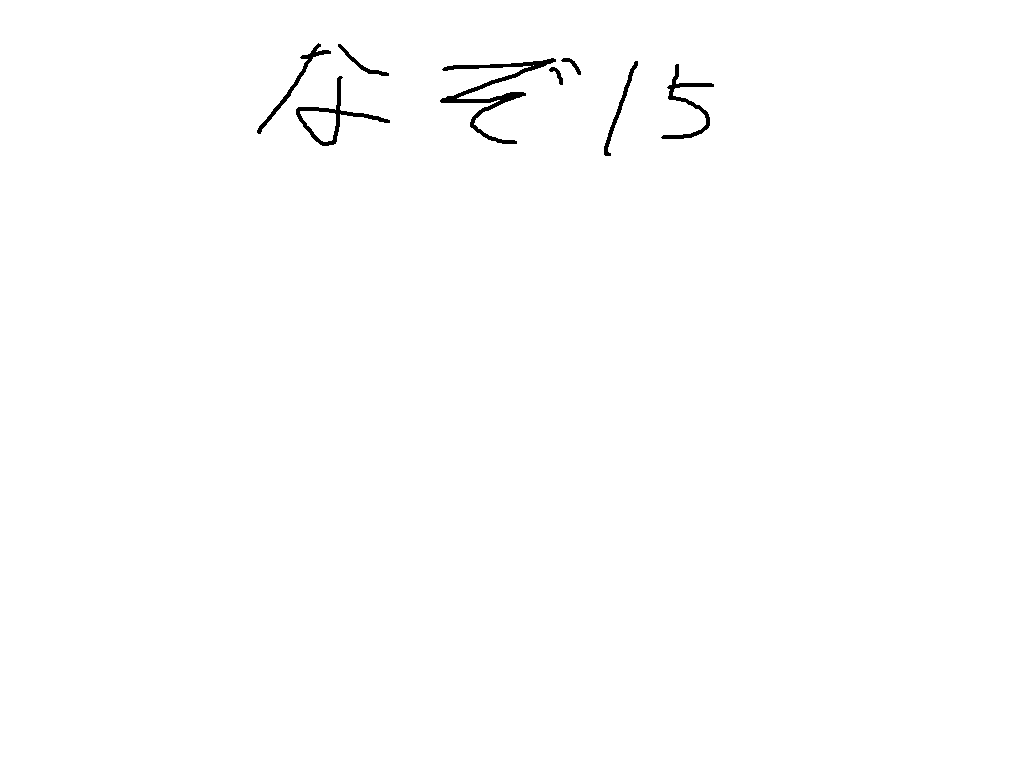 なぞ15